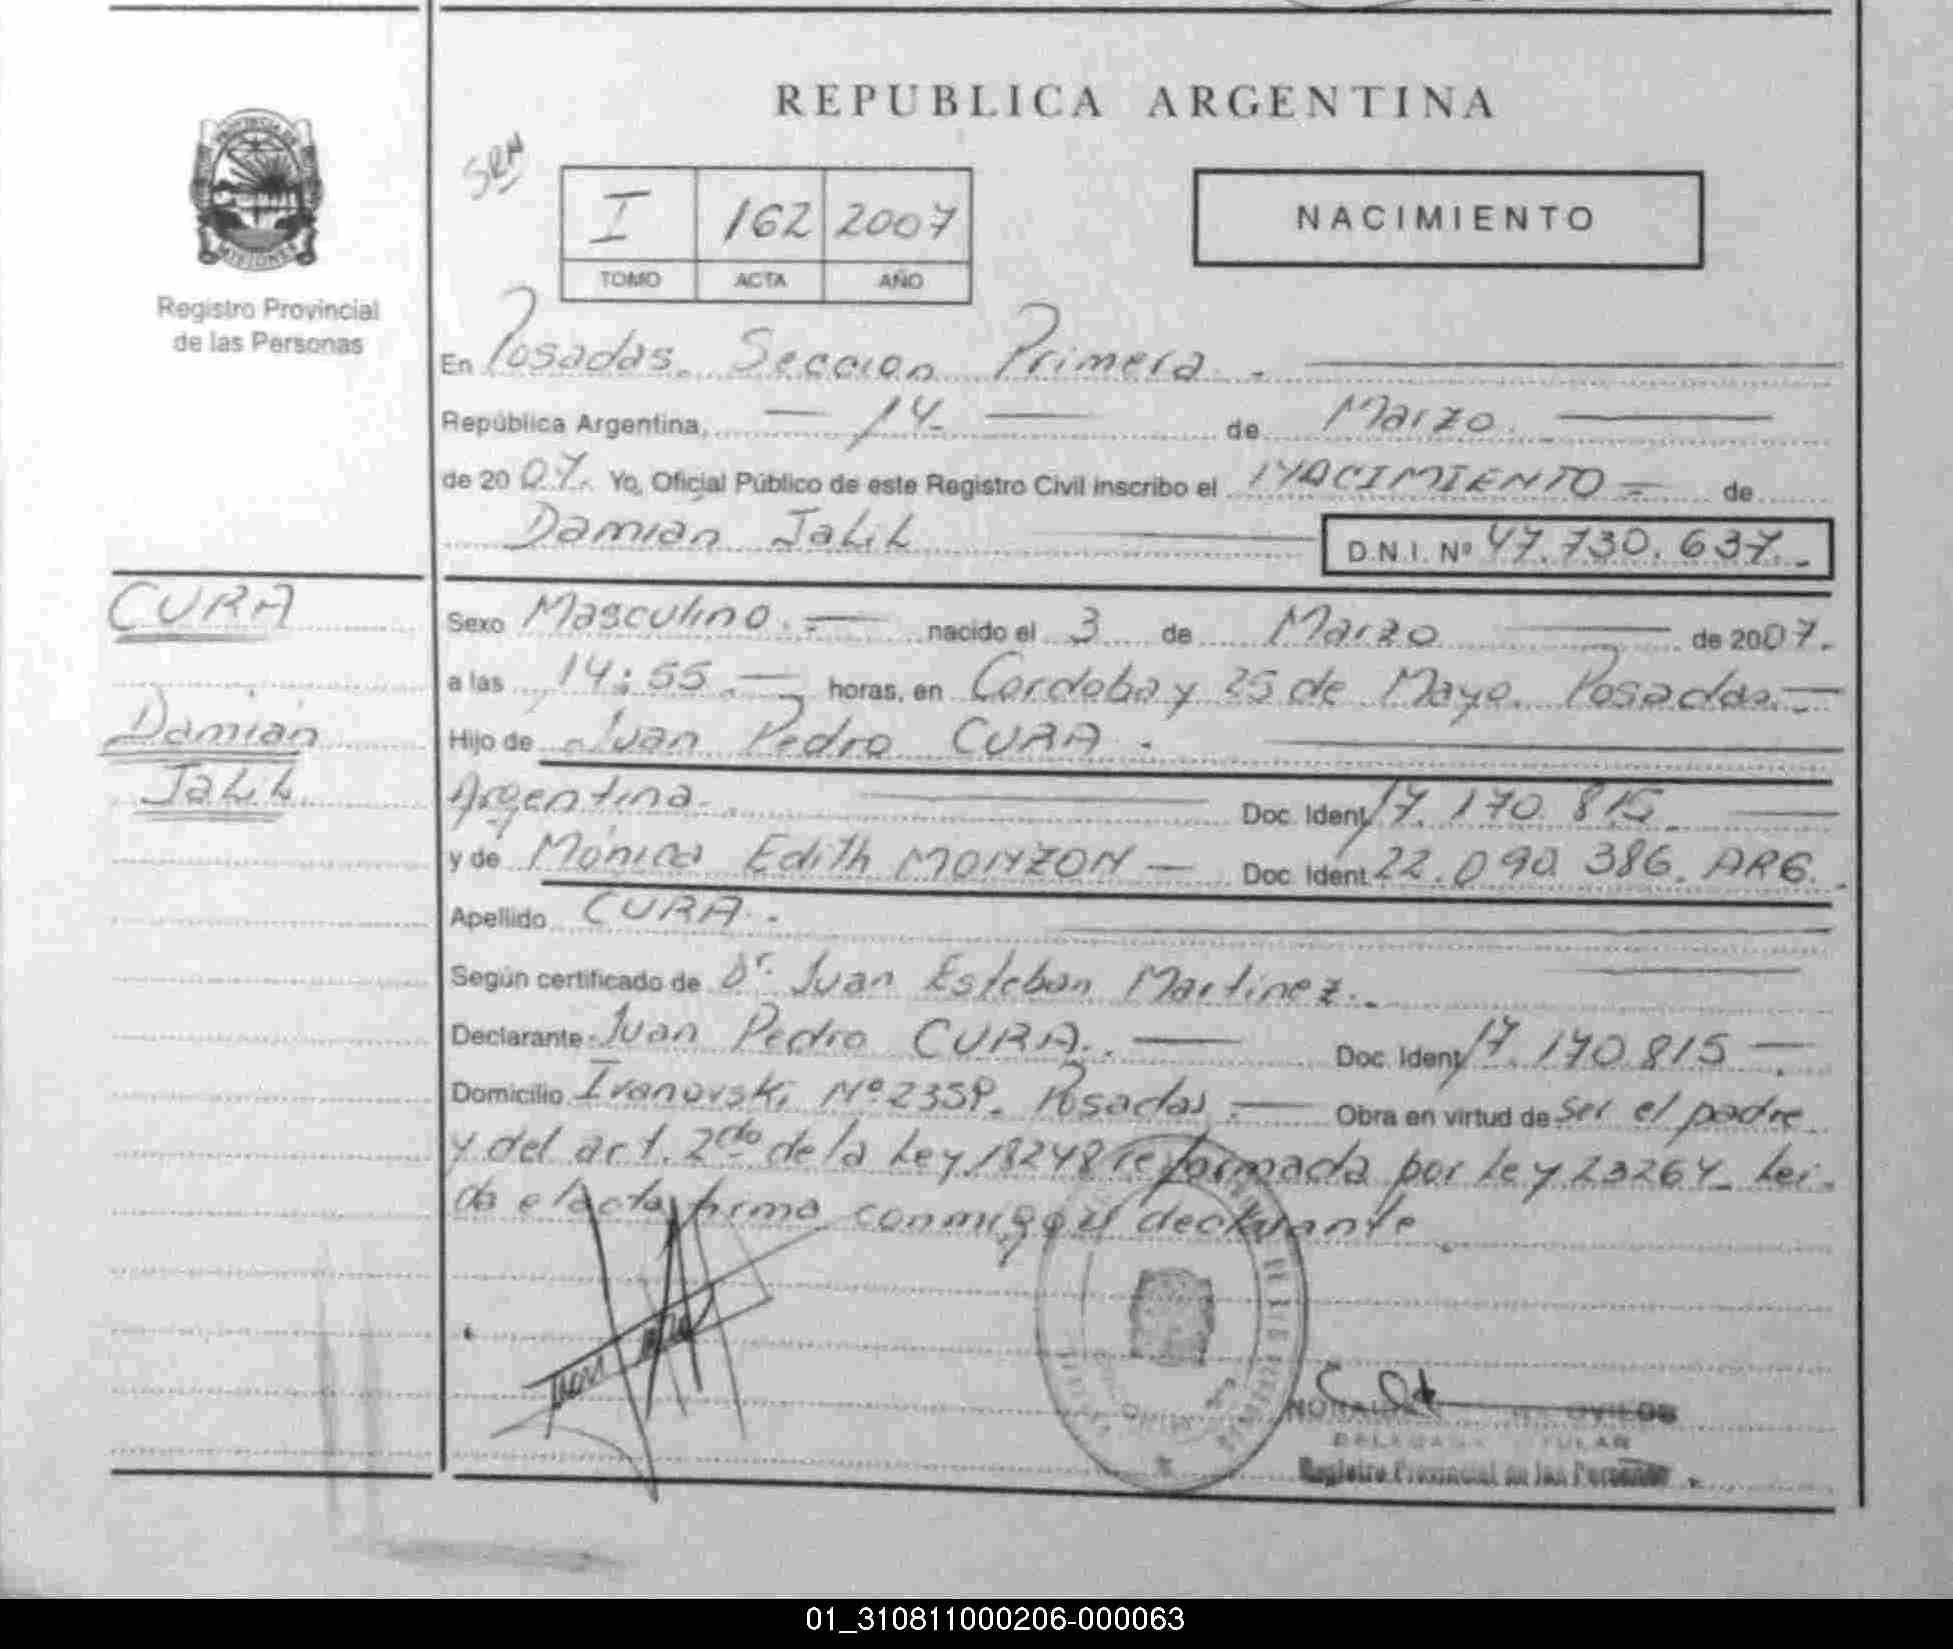 REPUBLICA ARGENTINA
PROVINCIA DE
MISIONES
Registro Provincial
de las Personas
I 162 2007
TOMO ACTA AÑO
NACIMIENTO
En Posadas. Seccion Primera.
República Argentina, 14 de Marzo.
de 2007. Yo, Oficial Público de este Registro Civil inscribo el NACIMIENTO de
Damian Jalil
D.N.I. Nº 47.730.637.
CURA
Damian
Jalil
Sexo Masculino. nacido el 3 de Marzo de 2007.
a las 14:55. horas, en Cordoba y 25 de Mayo. Posadas.
Hijo de Juan Pedro CURA.
Argentina. Doc. Ident. 17.170.815
y de Mónica Edith MONZON Doc. Ident. 22.090.386. ARG.
Apellido CURA.
Según certificado de Dr. Juan Esteban Martinez.
Declarante Juan Pedro CURA. Doc. Ident. 17.170.815
Domicilio Ivanovski Nº 2359. Posadas. Obra en virtud de ser el padre
y del art. 2do de la Ley 18248 reformada por Ley 23264. Lei-
da el acta firma conmigo el declarante.
TULAR
Registro Provincial de las Personas
01_310811000206-000063